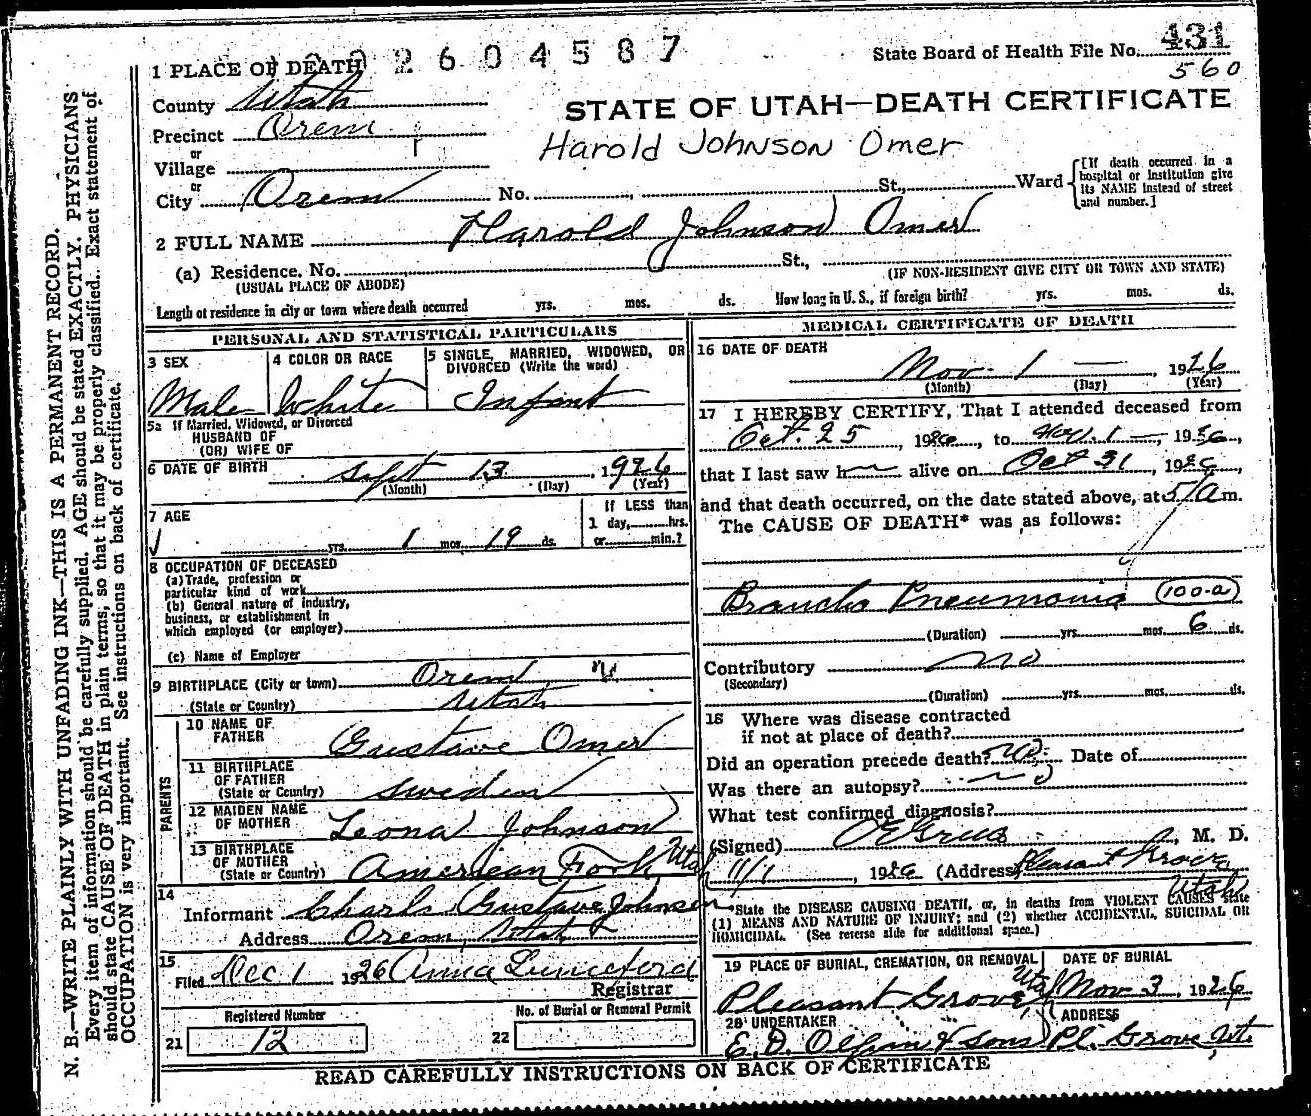 22604587
State Board of Health File No. 431
560
1 PLACE OF DEATH
County Utah
STATE OF UTAH—DEATH CERTIFICATE
Precinct Orem
Harold Johnson Omer
or
Village
or
City Orem No. St., Ward
[If death occurred in a
hospital or institution give
its NAME instead of street
and number.]
2 FULL NAME Harold Johnson Omer
(a) Residence. No. St.,
(USUAL PLACE OF ABODE)
(IF NON-RESIDENT GIVE CITY OR TOWN AND STATE)
Length of residence in city or town where death occurred yrs. mos. ds. How long in U. S., if foreign birth? yrs. mos. ds.
PERSONAL AND STATISTICAL PARTICULARS
3 SEX
Male
4 COLOR OR RACE
White
5 SINGLE, MARRIED, WIDOWED, OR
DIVORCED (Write the word)
Infant
5a If Married, Widowed, or Divorced
HUSBAND OF
(OR) WIFE OF
6 DATE OF BIRTH Sept 13, 1926
(Month) (Day) (Year)
7 AGE
yrs. 1 mos. 19 ds.
If LESS than
1 day, hrs.
or min.?
8 OCCUPATION OF DECEASED
(a) Trade, profession or
particular kind of work
(b) General nature of industry,
business, or establishment in
which employed (or employer)
(c) Name of Employer
9 BIRTHPLACE (City or town) Orem
(State or Country) Utah
PARENTS
10 NAME OF
FATHER Gustave Omer
11 BIRTHPLACE
OF FATHER
(State or Country) Sweden
12 MAIDEN NAME
OF MOTHER Leona Johnson
13 BIRTHPLACE
OF MOTHER
(State or Country) American Fork Utah
14
Informant Charls Gustave Johnson
Address Orem, Utah
15
Filed Dec 1 1926 Anna
Registrar
Registered Number
21 12
No. of Burial or Removal Permit
22
MEDICAL CERTIFICATE OF DEATH
16 DATE OF DEATH
Nov 1 — , 1926
(Month) (Day) (Year)
17 I HEREBY CERTIFY, That I attended deceased from
Oct. 25, 1926, to Nov. 1 —, 1926,
that I last saw h alive on Oct 31, 1926,
and that death occurred, on the date stated above, at 5/a m.
The CAUSE OF DEATH* was as follows:
Broncho Pneumonia (100-a)
(Duration) yrs. mos. 6 ds.
Contributory no
(Secondary)
(Duration) yrs. mos. ds.
18 Where was disease contracted
if not at place of death?
Did an operation precede death? no Date of
Was there an autopsy? no
What test confirmed diagnosis?
(Signed) , M. D.
11/1, 1926 (Address) Pleasant Grove
Utah
*State the DISEASE CAUSING DEATH, or, in deaths from VIOLENT CAUSES state
(1) MEANS AND NATURE OF INJURY; and (2) whether ACCIDENTAL, SUICIDAL OR
HOMICIDAL. (See reverse side for additional space.)
19 PLACE OF BURIAL, CREMATION, OR REMOVAL
Pleasant Grove, Utah
DATE OF BURIAL
Nov 3, 1926
20 UNDERTAKER
E. D. & Sons
ADDRESS
Pl. Grove, Ut.
READ CAREFULLY INSTRUCTIONS ON BACK OF CERTIFICATE
N. B.—WRITE PLAINLY WITH UNFADING INK—THIS IS A PERMANENT RECORD.
Every item of information should be carefully supplied. AGE should be stated EXACTLY. PHYSICIANS
should state CAUSE OF DEATH in plain terms, so that it may be properly classified. Exact statement of
OCCUPATION is very important. See instructions on back of certificate.